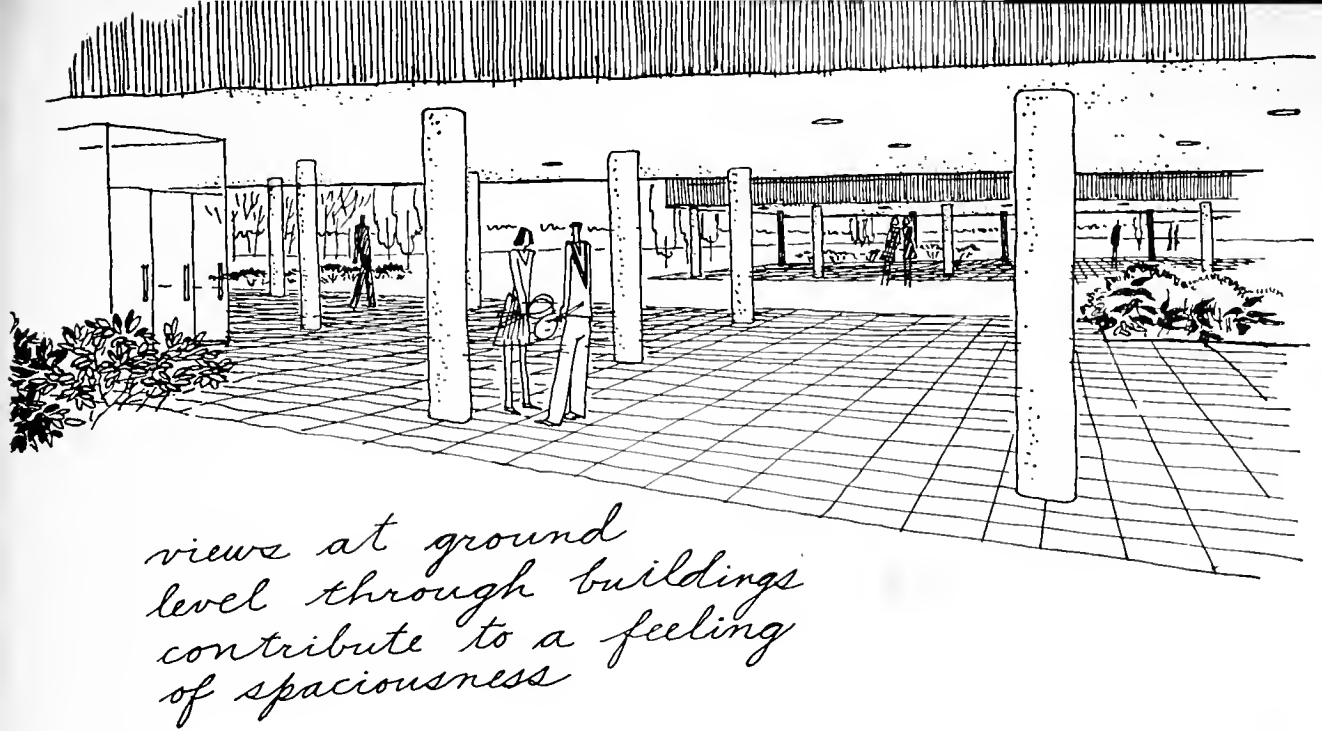 views at ground
level through buildings
contribute to a feeling
of spaciousness